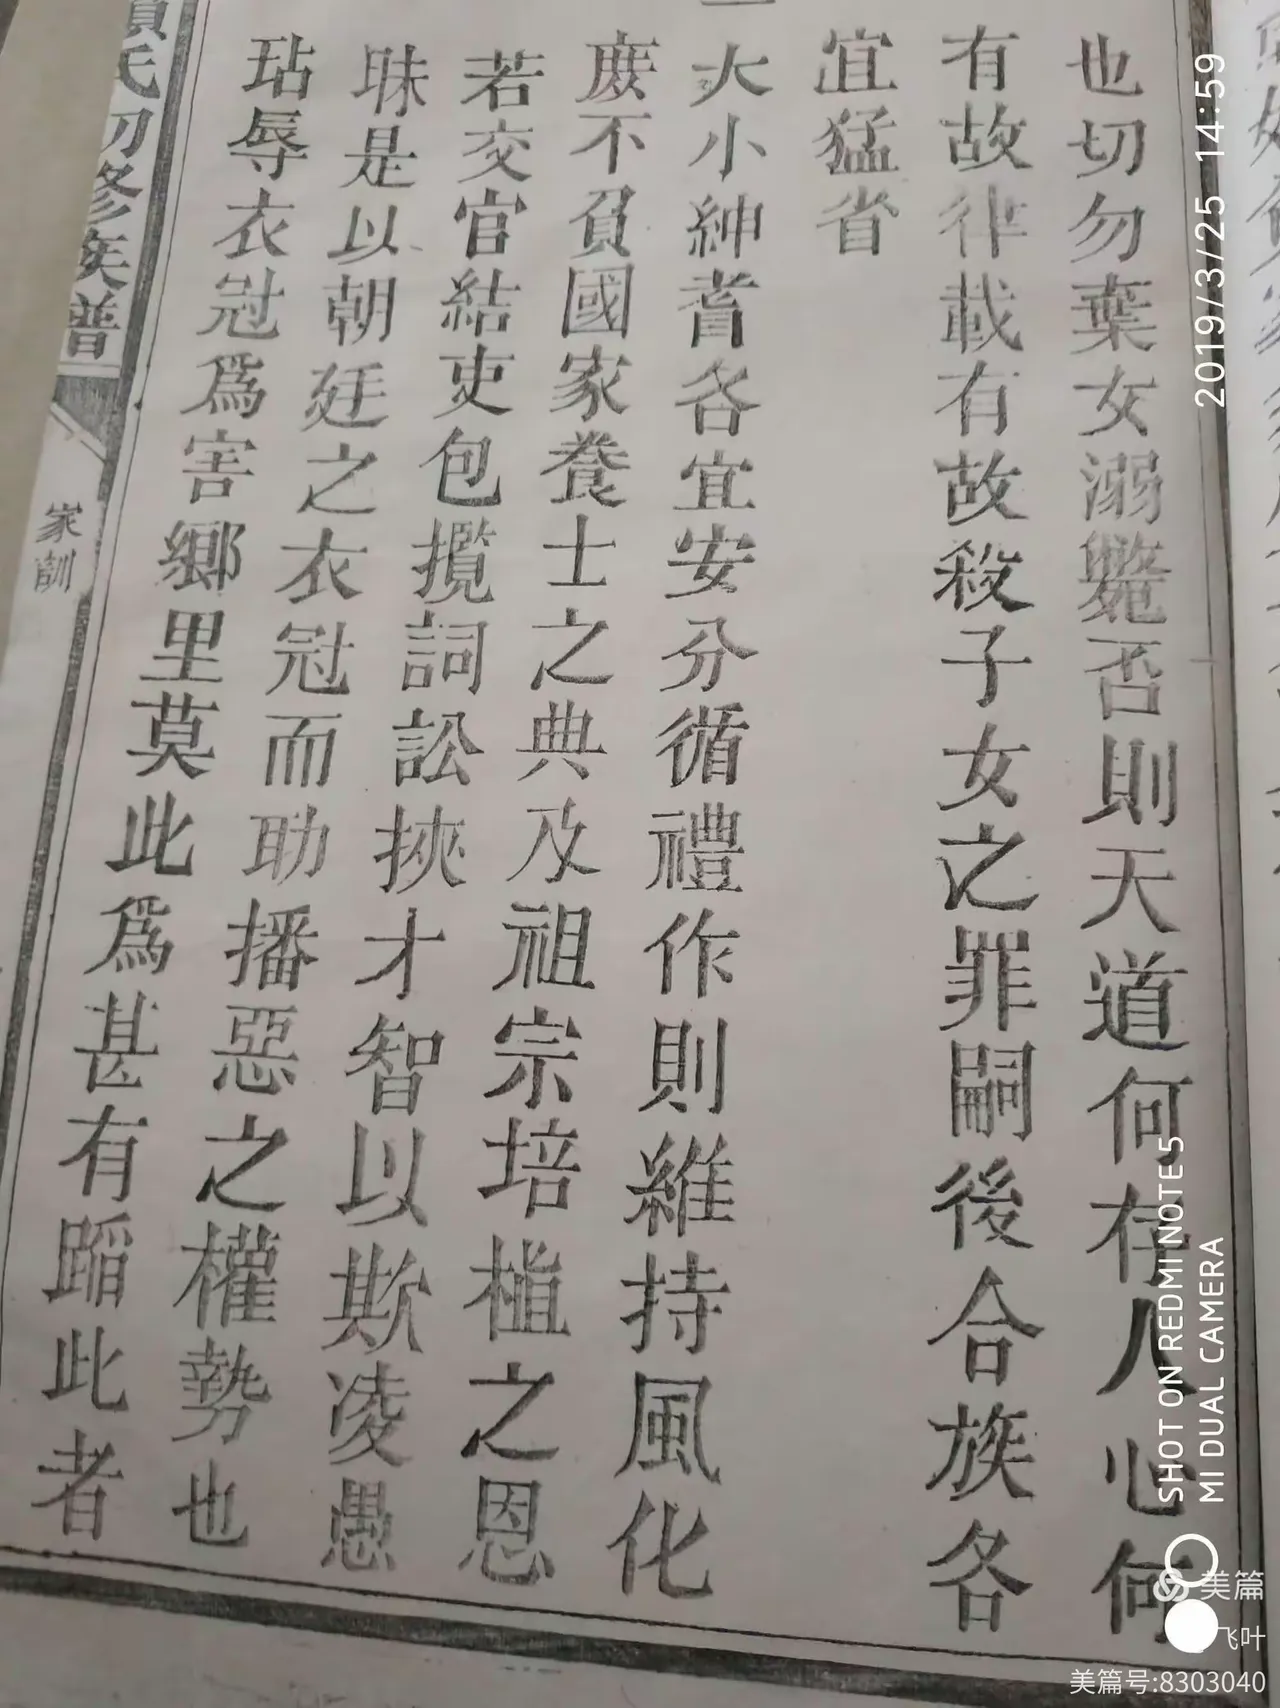 也切勿棄女溺斃否則天道何存人心何
有故律載有故殺子女之罪嗣後合族各
宜猛省
一大小紳耆各宜安分循禮作則維持風化
庻不負國家養士之典及祖宗培植之恩
若交官結吏包攬詞訟挾才智以欺凌愚
昧是以朝廷之衣冠而助播惡之權勢也
玷辱衣冠爲害鄉里莫此爲甚有蹈此者
氏初修族譜
家訓
2019/3/25 14:59
SHOT ON REDMI NOTE5
MI DUAL CAMERA
美篇
飞叶
美篇号:8303040